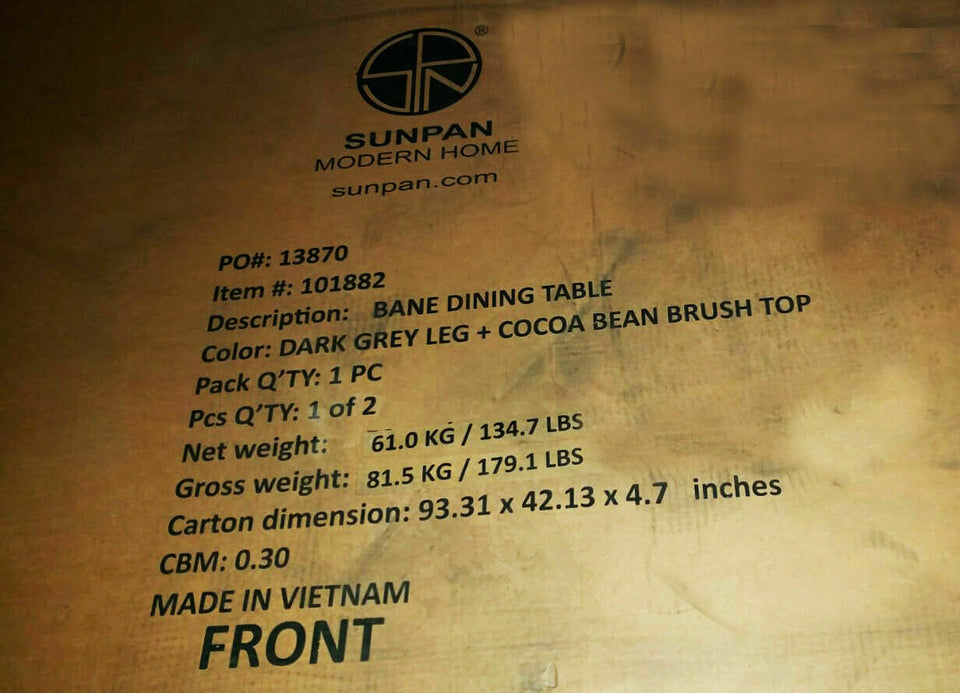 ®
SUNPAN
MODERN HOME
sunpan.com
PO#: 13870
Item #: 101882
Description: BANE DINING TABLE
Color: DARK GREY LEG + COCOA BEAN BRUSH TOP
Pack Q'TY: 1 PC
Pcs Q'TY: 1 of 2
Net weight: 61.0 KG / 134.7 LBS
Gross weight: 81.5 KG / 179.1 LBS
Carton dimension: 93.31 x 42.13 x 4.7 inches
CBM: 0.30
MADE IN VIETNAM
FRONT